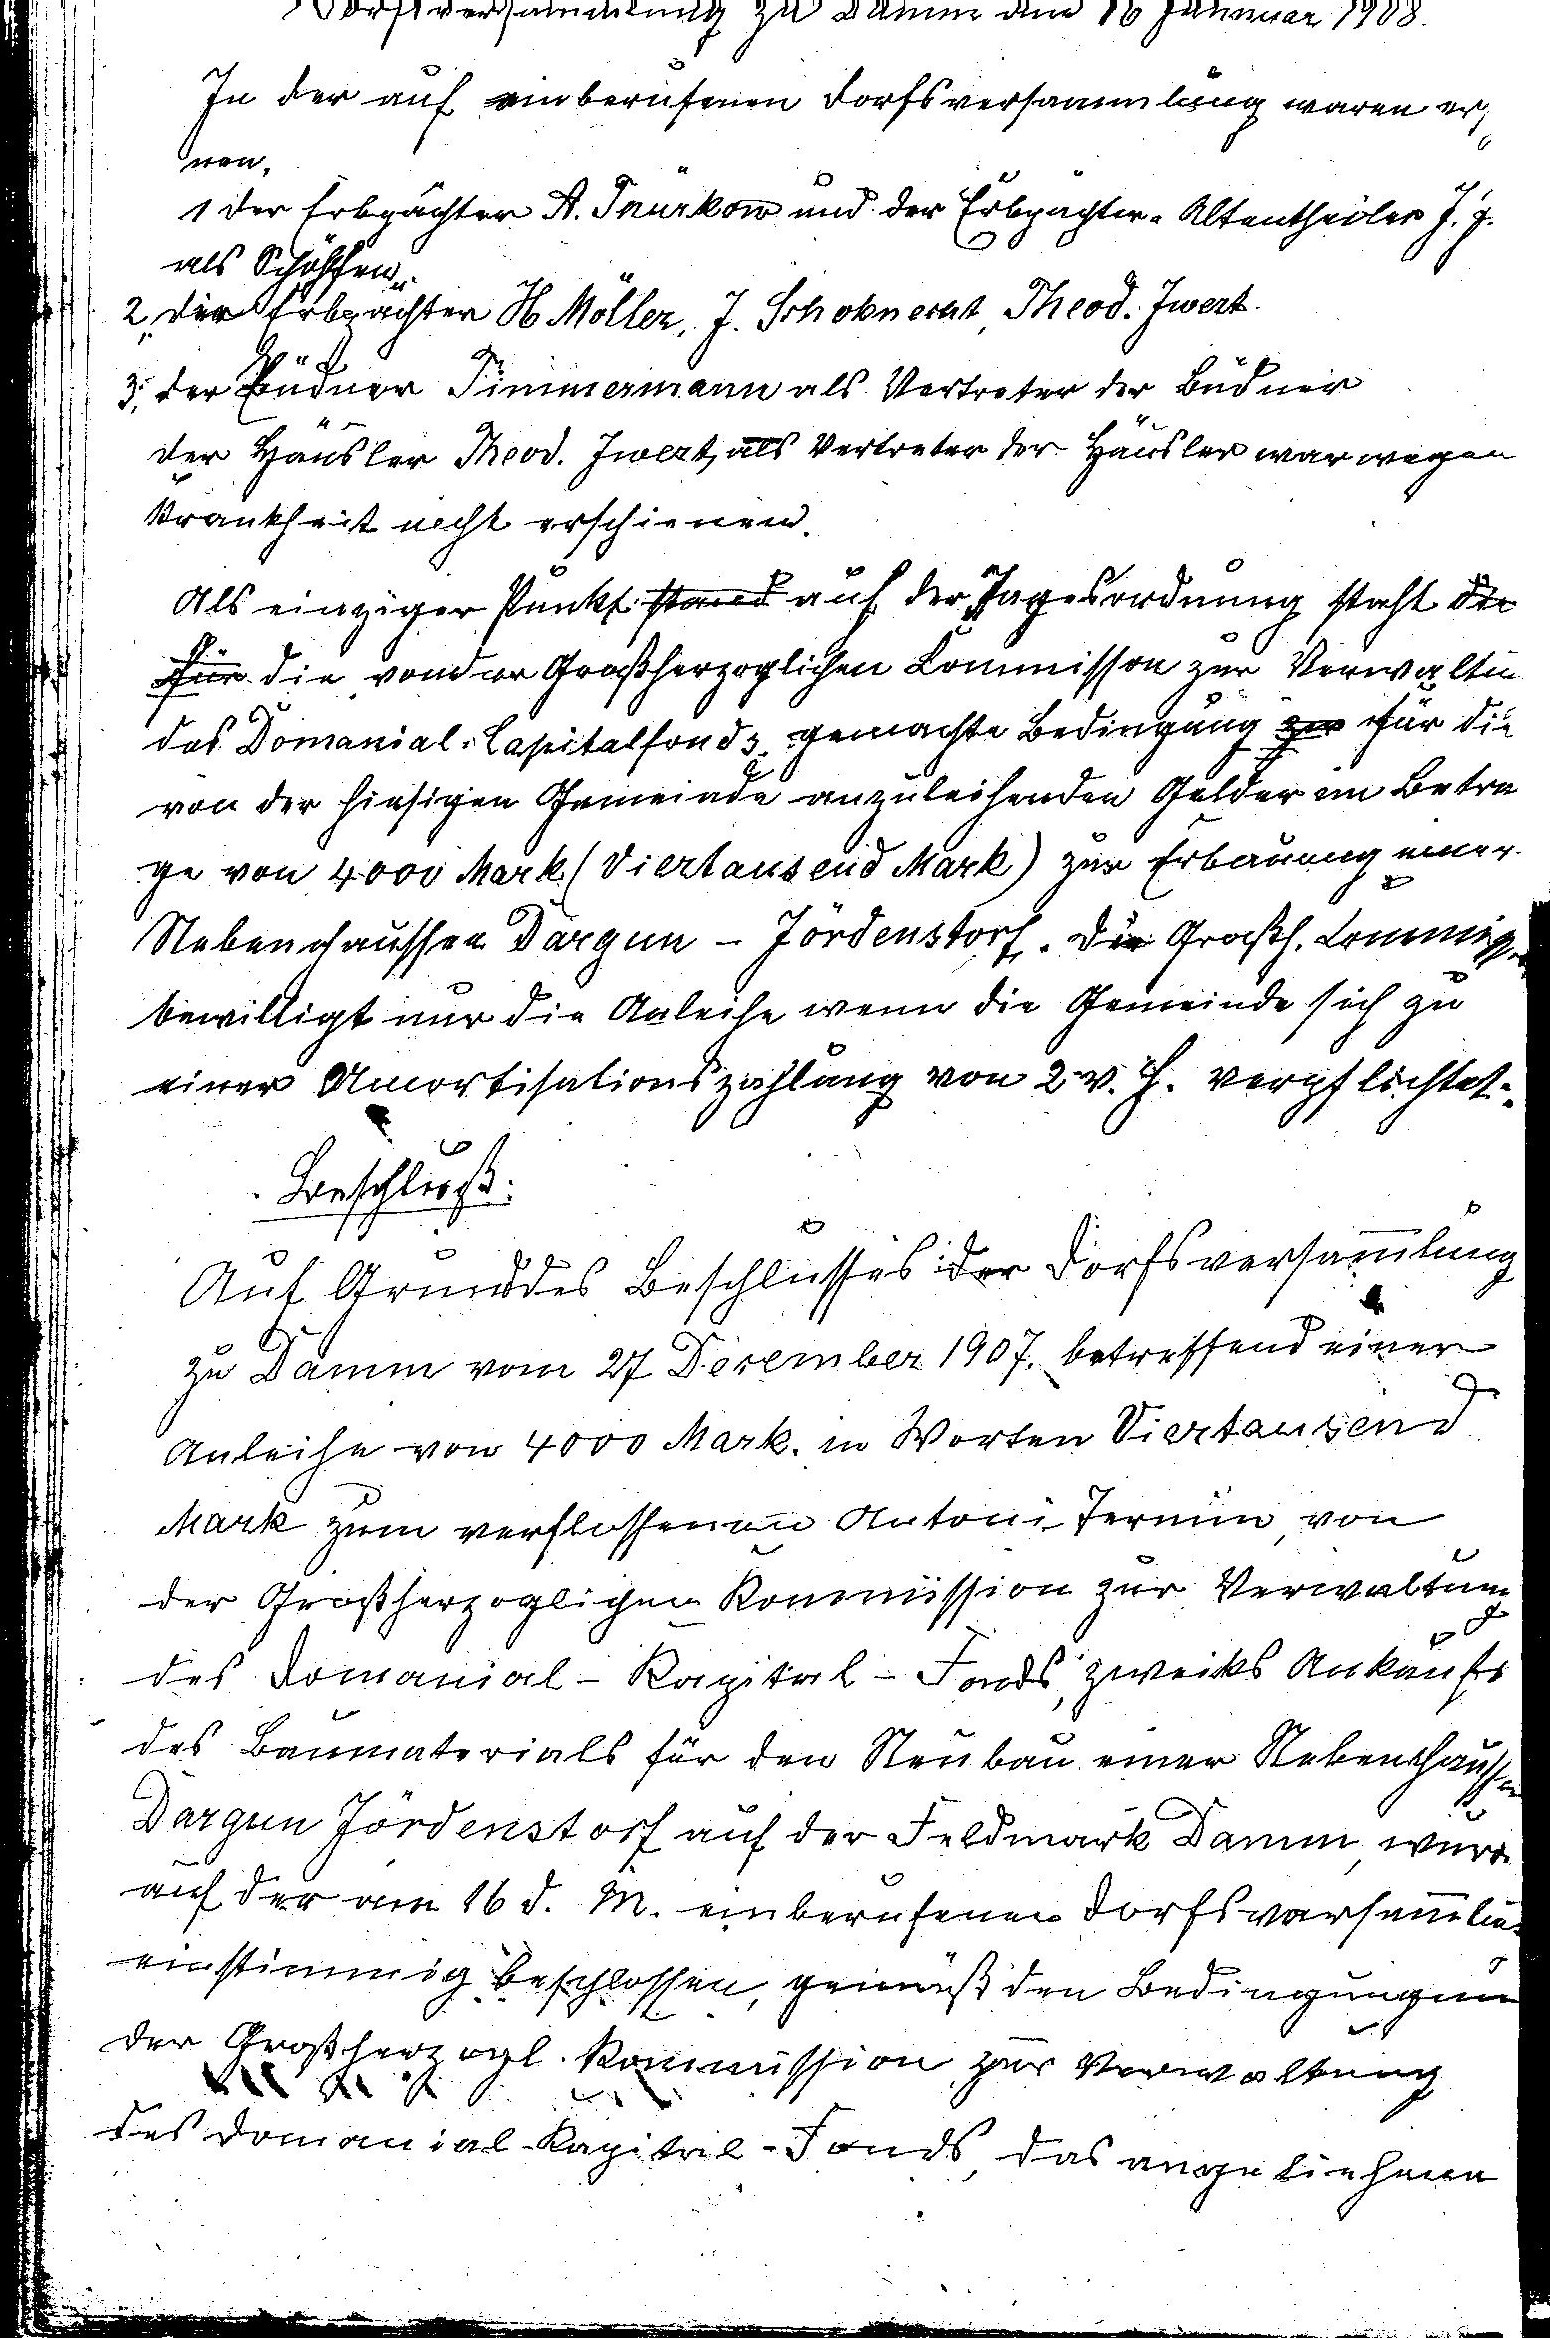 Dorfsversammlung zu Damm am 16 Januar 1908.
In der auf einberufenen Dorfsversammlung waren er=
nen,
1 der Erbpächter A. Tnürkow und der Erbpächter-Altentheiler J. J.
als Schöffen.
2, die Erbpächter H Möller, J. Schoknecht, Theod. Jwert.
3, der Büdner Timmermann als Vertreter der Büdner
der Häusler Theod. Jwert, als Vertreter der Häusler war wegen
Krankheit nicht erschienen.
Als einziger Punkt stand auf der Tagesordnung steht die
für die von der Großherzoglichen Commisson zur Verwaltun
das Domanial-Capitalfonds gemachte Bedingung zur für die
von der hiesigen Gemeinde anzuleihenden Gelder im Betra
ge von 4000 Mark (Viertausend Mark) zur Erbauung einer
Nebenchaussee Dargun - Jördenstorf. Die Großh. Commiss
bewilligt nur die Anleihe wenn die Gemeinde sich zu
einer Amortisationszahlung von 2 v. H. verpflichtet.
Beschluß:
Auf Grund des Beschlusses der Dorfsversam̅lung
zu Damm vom 27 Dezember 1907. betreffend einer
Anleihe von 4000 Mark. in Worten Viertausend
Mark zum verflossenen Antoni-Termin, von
der Großherzogligen Kommission zur Verwaltung
des Domanial-Kapital-Fonds, zwecks Ankaufs
des Baumaterials für den Neubau einer Nebenchaussee
Dargun Jördenstorf auf der Feldmark Damm, wurd
auf der am 16 d. M. einberufenen Dorfsversam̅lu
einstimmig beschlossen, gemäß den Bedingungen
der Großherzogl. Kommission zur Verwaltung
des Domanial-Kapital-Fonds, das angeliehene